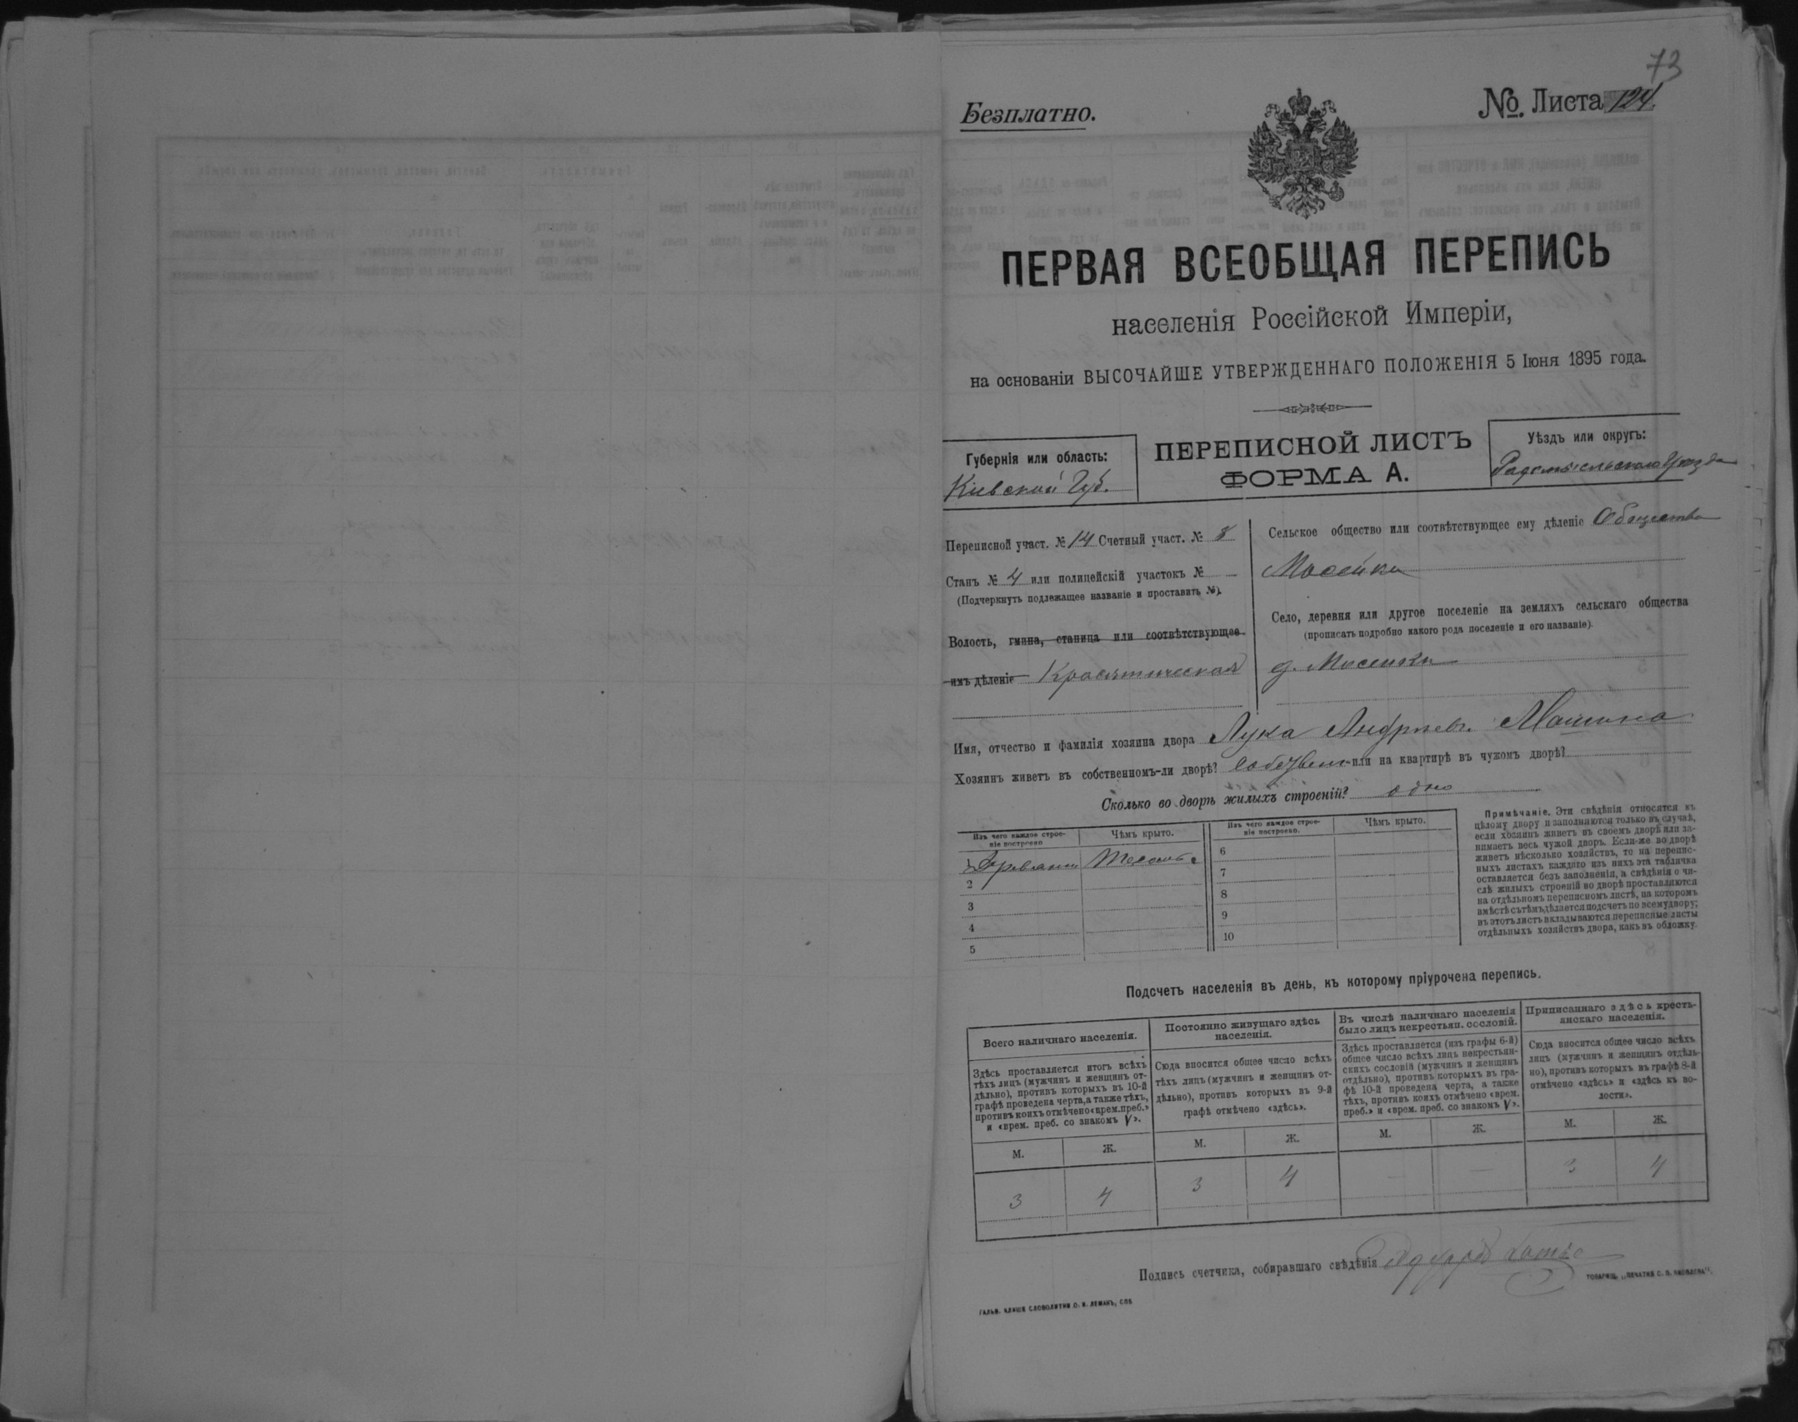 73
Безплатно.
№. Листа 124.
ПЕРВАЯ ВСЕОБЩАЯ ПЕРЕПИСЬ
населенія Россійской Имперіи,
на основаніи ВЫСОЧАЙШЕ УТВЕРЖДЕННАГО ПОЛОЖЕНІЯ 5 Іюня 1895 года.
Губернія или область:
Кіевской Губ.
ПЕРЕПИСНОЙ ЛИСТЪ
ФОРМА А.
Уѣздъ или округъ:
Радомысльскаго Уѣзда
Переписной участ. № 14 Счетный участ. № 8
Станъ № 4 или полицейскій участокъ № —
(Подчеркнуть подлежащее названіе и проставить №).
Волость, гмина, станица или соотвѣтствующее
имъ дѣленіе Красятическая
Сельское общество или соотвѣтствующее ему дѣленіе Общество
Мосейки
Село, деревня или другое поселеніе на земляхъ сельскаго общества
(прописать подробно какого рода поселеніе и его названіе).
д. Мосейки
Имя, отчество и фамилія хозяина двора Лука Андріев.
Хозяинъ живетъ въ собственномъ-ли дворѣ? или на квартирѣ въ чужомъ дворѣ?
Сколько во дворѣ жилыхъ строеній? одно
Изъ чего каждое строе-
ніе построено
Чѣмъ крыто.
Изъ чего каждое строе-
ніе построено.
Чѣмъ крыто.
2
3
4
5
6
7
8
9
10
Примѣчаніе. Эти свѣдѣнія относятся къ
цѣлому двору и заполняются только въ случаѣ,
если хозяинъ живетъ въ своемъ дворѣ или за-
нимаетъ весь чужой дворъ. Если-же во дворѣ
живетъ нѣсколько хозяйствъ, то на перепис-
ныхъ листахъ каждаго изъ нихъ эта табличка
оставляется безъ заполненія, а свѣдѣнія о чи-
слѣ жилыхъ строеній во дворѣ проставляются
на отдѣльномъ переписномъ листѣ, на которомъ
вмѣстѣ съ тѣмъ, дѣлается подсчетъ по всему двору;
въ этотъ листъ вкладываются переписные листы
отдѣльныхъ хозяйствъ двора, какъ въ обложку.
Подсчетъ населенія въ день, къ которому пріурочена перепись.
Всего наличнаго населенія.
Здѣсь проставляется итогъ всѣхъ
тѣхъ лицъ (мужчинъ и женщинъ от-
дѣльно), противъ которыхъ въ 10-й
графѣ проведена черта, а также тѣхъ,
противъ коихъ отмѣчено «врем. преб.»
и «врем. преб. со знакомъ V».
Постоянно живущаго здѣсь
населенія.
Сюда вносится общее число всѣхъ
тѣхъ лицъ (мужчинъ и женщинъ от-
дѣльно), противъ которыхъ въ 9-й
графѣ отмѣчено «здѣсь».
Въ числѣ наличнаго населенія
было лицъ некрестьян. сословій.
Здѣсь проставляется (изъ графы 6-й)
общее число всѣхъ лицъ некрестьян-
скихъ сословій (мужчинъ и женщинъ
отдѣльно), противъ которыхъ въ гра-
фѣ 10-й проведена черта, а также
тѣхъ, противъ коихъ отмѣчено «врем.
преб.» и «врем. преб. со знакомъ V».
Приписаннаго здѣсь кресть-
янскаго населенія.
Сюда вносится общее число всѣхъ
лицъ (мужчинъ и женщинъ отдѣль-
но), противъ которыхъ въ графѣ 8-й
отмѣчено «здѣсь» и «здѣсь въ во-
лости».
М. Ж. М. Ж. М. Ж. М. Ж.
3 4 3 4 — — 3 4
Подпись счетчика, собиравшаго свѣдѣнія
ГАЛЬВ. КЛИШЕ СЛОВОЛИТНИ О. И. ЛЕМАНЪ, СПБ
ТОВАРИЩ. „ПЕЧАТНЯ С. П. ЯКОВЛЕВА".